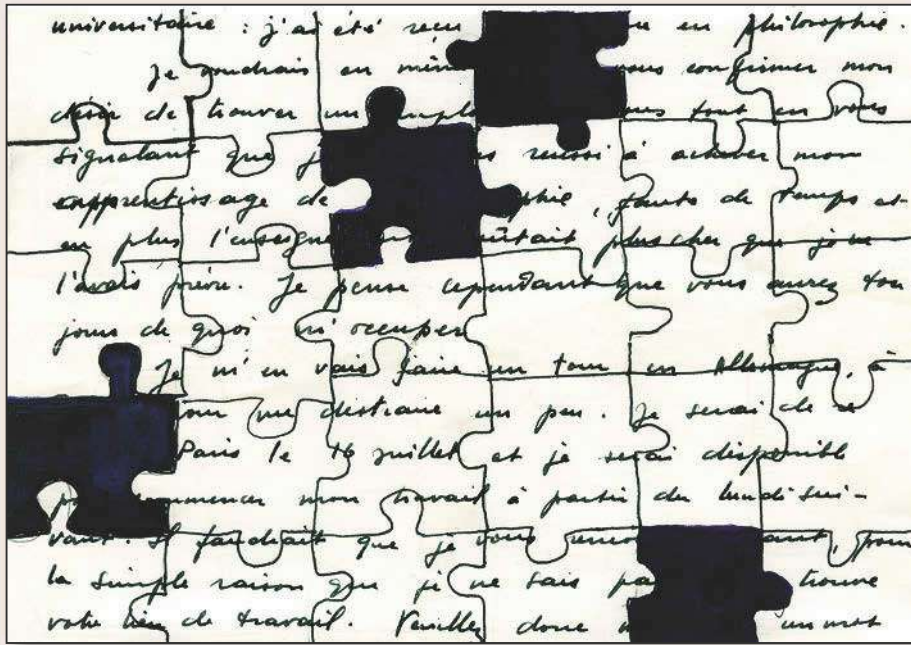 universitaire : j'ai été reçu en philosophie.
Je voudrais en vous confirmer mon
désir de trouver un tout en vous
signalant que réussi à achever mon
apprentissage de , faute de temps et
en plus plus cher que je ne
l'avais prévu. Je pense cependant que vous aurez tou
jours de quoi m'occuper
Je m'en vais faire un tour en Allemagne, à
me distraire un peu. Je serai de re
Paris le 16 juillet et je serai disponible
mon travail à partir du lundi sui-
vant. Il faudrait que je vous
la simple raison que je ne sais trouve
votre lieu de travail. Veuillez donc un mot